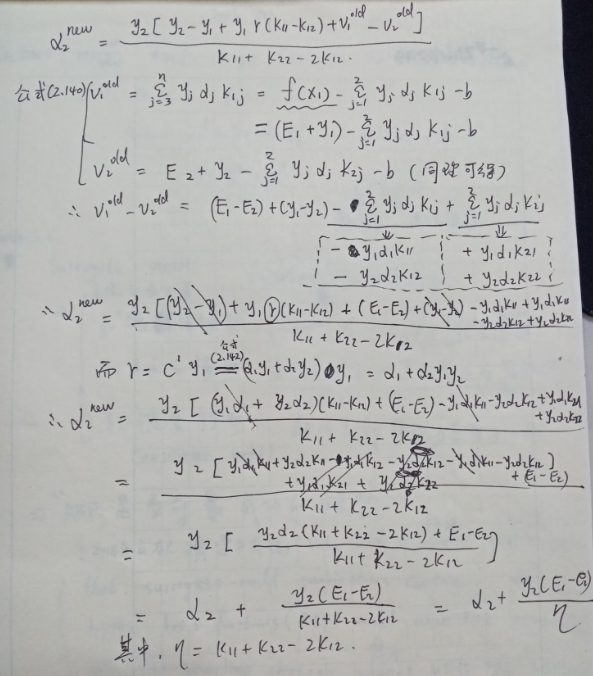 α₂ⁿᵉʷ = y₂[y₂ - y₁ + y₁ r(K₁₁-K₁₂) + v₁ᵒˡᵈ - v₂ᵒˡᵈ] / (K₁₁ + K₂₂ - 2K₁₂.)
公式(2.140) v₁ᵒˡᵈ = Σⱼ₌₃ⁿ yⱼ αⱼ K₁ⱼ = f(x₁) - Σⱼ₌₁² yⱼ αⱼ K₁ⱼ - b
= (E₁ + y₁) - Σⱼ₌₁² yⱼ αⱼ K₁ⱼ - b
v₂ᵒˡᵈ = E₂ + y₂ - Σⱼ₌₁² yⱼ αⱼ K₂ⱼ - b (同理可得)
∴ v₁ᵒˡᵈ - v₂ᵒˡᵈ = (E₁-E₂) + (y₁-y₂) - Σⱼ₌₁² yⱼ αⱼ K₁ⱼ + Σⱼ₌₁² yⱼ αⱼ K₂ⱼ
- y₁α₁K₁₁ + y₁α₁K₂₁
- y₂α₂K₁₂ + y₂α₂K₂₂
∴ α₂ⁿᵉʷ = y₂[(y₂ - y₁) + y₁ r(K₁₁-K₁₂) + (E₁-E₂) + (y₁-y₂) - y₁α₁K₁₁ + y₁α₁K₁₁ - y₂α₂K₁₂ + y₂α₂K₂₂ / (K₁₁ + K₂₂ - 2K₁₂)
而 r = C' y₁ =公式(2.142)= (α₁y₁ + α₂y₂) y₁ = α₁ + α₂y₁y₂
∴ α₂ⁿᵉʷ = y₂[(y₁α₁ + y₂α₂)(K₁₁-K₁₂) + (E₁-E₂) - y₁α₁K₁₁ - y₂α₂K₁₂ + y₁α₁K₂₁ + y₂α₂K₂₂ / (K₁₁ + K₂₂ - 2K₁₂)
= y₂[y₁α₁K₁₁ + y₂α₂K₁₁ - y₁α₁K₁₂ - y₂α₂K₁₂ - y₁α₁K₁₁ - y₂α₂K₁₂ + y₁α₁K₂₁ + y₂α₂K₂₂] + (E₁-E₂) / (K₁₁ + K₂₂ - 2K₁₂)
= y₂[ (y₂α₂(K₁₁ + K₂₂ - 2K₁₂) + E₁-E₂) / (K₁₁ + K₂₂ - 2K₁₂) ]
= α₂ + y₂(E₁-E₂) / (K₁₁+K₂₂-2K₁₂) = α₂ + y₂(E₁-E₂) / η
其中, η = K₁₁ + K₂₂ - 2K₁₂.